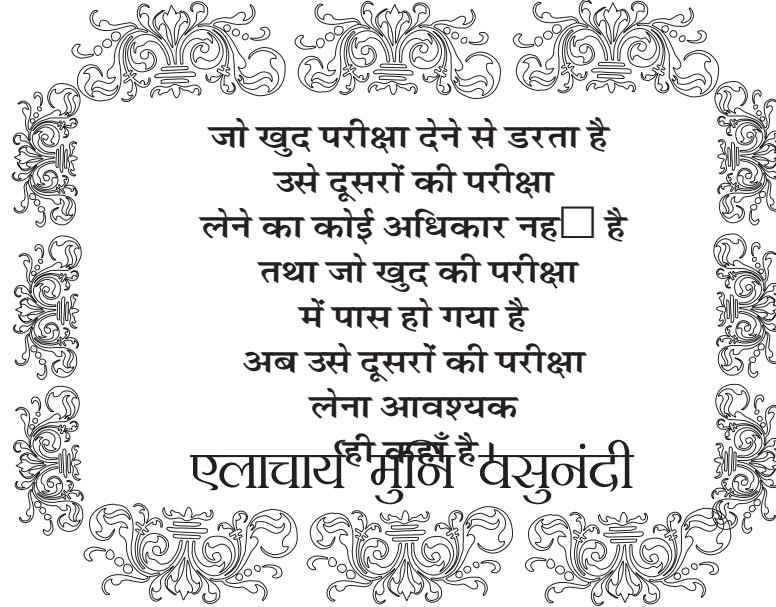 जो खुद परीक्षा देने से डरता है
उसे दूसरों की परीक्षा
लेने का कोई अधिकार नह□ है
तथा जो खुद की परीक्षा
में पास हो गया है
अब उसे दूसरों की परीक्षा
लेना आवश्यक
ही कहाँ है ।
एलाचार्य मुनि वसुनंदी